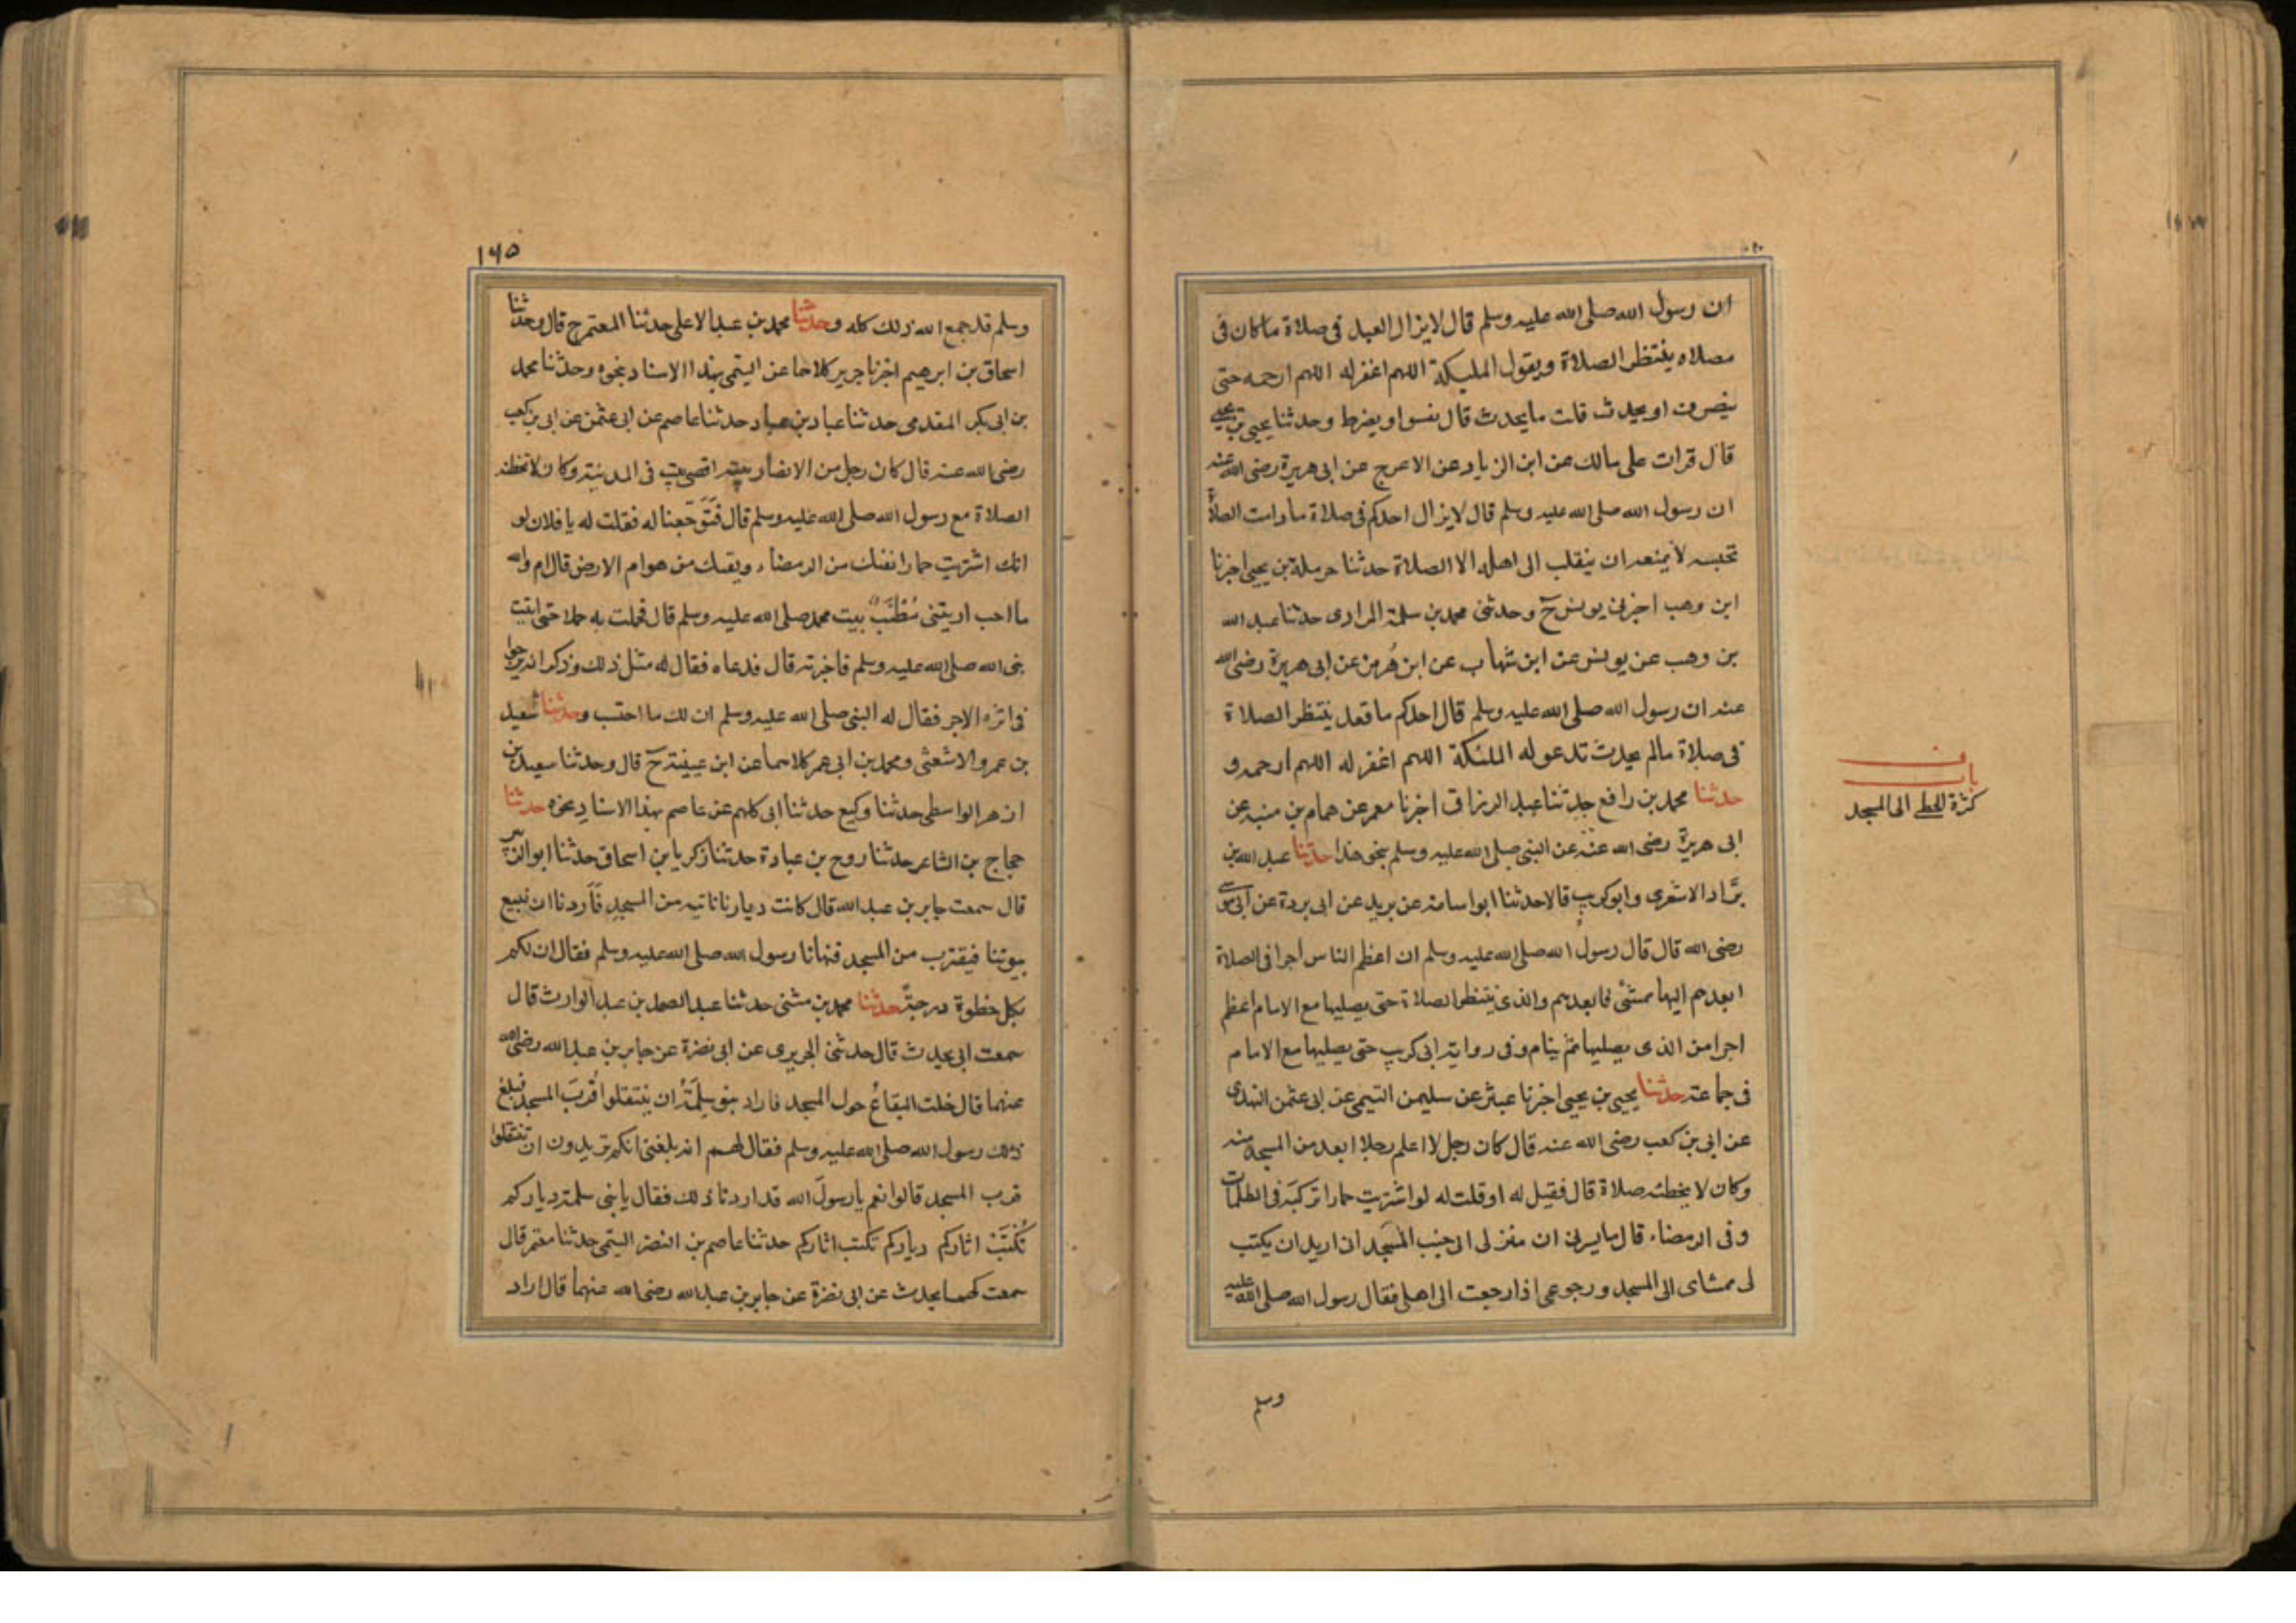 ان رسول الله صلى الله عليه وسلم قال لا يزال العبد فى صلاة ما كان فى
مصلاه ينتظر الصلاة ويقول المليكة اللهم اغفر له اللهم ارحمه حتى
ينصرف او يحدث قلت ما يحدث قال يفسو او يضرط وحدثنا يحيى بن يحيى
قال قرات على مالك عن ابن الزياد عن الاعرج عن ابى هريرة رضى الله عنه
ان رسول الله صلى الله عليه وسلم قال لا يزال احدكم فى صلاة ما دامت الصلاة
تحبسه لا يمنعه ان ينقلب الى اهله الا الصلاة حدثنا حرملة بن يحيى اخبرنا
ابن وهب اخبرنى يونس ح وحدثنى محمد بن سلمة المرادى حدثنا عبد الله
بن وهب عن يونس عن ابن شهاب عن ابن هُرمز عن ابى هريرة رضى الله
عنه ان رسول الله صلى الله عليه وسلم قال احدكم ما قعد ينتظر الصلاة
فى صلاة مالم يحدث تدعو له الملئكة اللهم اغفر له اللهم ارحمه و
حدثنا محمد بن رافع حدثنا عبد الرزاق اخبرنا معمر عن همام بن منبه عن
ابى هريرة رضى الله عنه عن النبى صلى الله عليه وسلم بنحو هذا حدثنا عبد الله بن
برَّاد الاشعرى وابو كريب قالا حدثنا ابو اسامة عن بريد عن ابى بردة عن ابى موسى
رضى الله قال قال رسول الله صلى الله عليه وسلم ان اعظم الناس اجرا فى الصلاة
ابعدهم اليها ممشىً فابعدهم والذى ينتظر الصلاة حتى يصليها مع الامام اعظم
اجرا من الذى يصليها ثم ينام وفى رواية ابى كريب حتى يصليها مع الامام
فى جماعة حدثنا يحيى بن يحيى اخبرنا عبثر عن سليمن التيمى عن ابى عثمن النهدى
عن ابى بن كعب رضى الله عنه قال كان رجل لا اعلم رجلا ابعد من المسجد منه
وكان لا يخطئه صلاة قال فقيل له او قلت له لو اشتريت حمارا تركبَه فى الظلمات
وفى الرمضاء قال ما يسرنى ان منزلى الى جنب المسجد انى اريد ان يكتب
لى ممشاى الى المسجد ورجوعى اذا رجعت الى اهلى فقال رسول الله صلى الله عليه
وسلم
باب
كثرة الخطى الى المسجد
١٤٥
وسلم قد جمع الله ذلك كله وحدثنا محمد بن عبد الاعلى حدثنا المعتمر ح قال وحدثنا
اسحاق بن ابرهيم اخبرنا جرير كلاهما عن التيمى بهذا الاسناد بنحوه وحدثنا محمد
بن ابى بكر المقدمى حدثنا عباد بن عباد حدثنا عاصم عن ابى عثمن عن ابى بن كعب
رضى الله عنه قال كان رجل من الانصار بيته اقصى بيت فى المدينة وكان لا تخطئه
الصلاة مع رسول الله صلى الله عليه وسلم قال فَتَوجّعنا له فقلت له يا فلان لو
انك اشتريت حمارا يقيك من الرمضاء ويقيك من هوام الارض قال ام والله
ما احب ان بيتى مُطَنَّبٌ ببيت محمد صلى الله عليه وسلم قال فحملت به حملا حتى اتيت
نبى الله صلى الله عليه وسلم فاخبرته قال فدعاه فقال له مثل ذلك وذكر انه يرجوا
فى اثره الاجر فقال له النبى صلى الله عليه وسلم ان لك ما احتسب وحدثنا سعيد
بن عمرو الاشعثى ومحمد بن ابى عمر كلاهما عن ابن عيينة ح قال وحدثنا سعيد بن
ازهر الواسطى حدثنا وكيع حدثنا ابى كلهم عن عاصم بهذا الاسناد نحوه حدثنا
حجاج بن الشاعر حدثنا روح بن عبادة حدثنا زكريا بن اسحاق حدثنا ابو الزبير
قال سمعت جابر بن عبد الله قال كانت ديارنا نائية من المسجد فَاَردنا ان نبيع
بيوتنا فيقترب من المسجد فنهانا رسول الله صلى الله عليه وسلم فقال ان لكم
بكل خطوة درجةً حدثنا محمد بن مثنى حدثنا عبد الصمد بن عبد الوارث قال
سمعت ابى يحدث قال حدثنى الجريرى عن ابى نضرة عن جابر بن عبد الله رضى الله
عنهما قال خلت البقاعُ حول المسجد فاراد بنو سلِمَةُ ان ينتقلوا قُربَ المسجد فبلغ
ذلك رسول الله صلى الله عليه وسلم فقال لهم انه بلغنى انكم تريدون ان تنتقلوا
قرب المسجد قالوا نعم يا رسولَ الله قد اردنا ذلك فقال يا بنى سلمة دياركم
تُكتَبْ اثاركم دياركم تكتب اثاركم حدثنا عاصم بن النضر التيمى حدثنا معتمر قال
سمعت كهمسا يحدث عن ابى نضرة عن جابر بن عبد الله رضى الله عنهما قال اراد